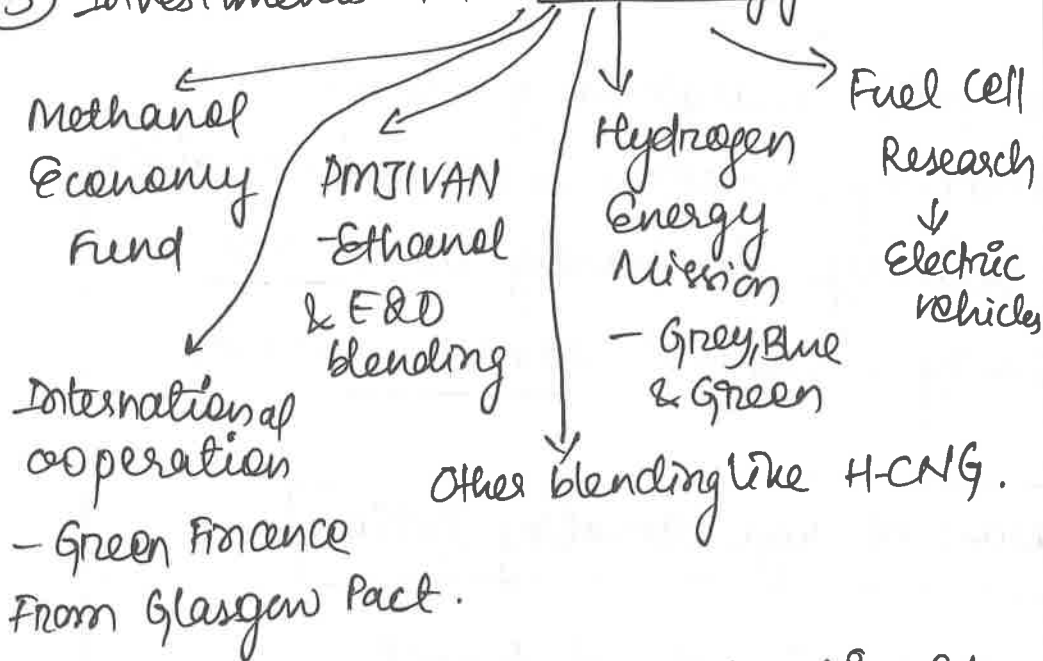 3) Investments
Methanol
Economy
Fund
PMJIVAN
-Ethanol
& E20
blending
Hydrogen
Energy
Mission
- Grey, Blue
& Green
Fuel Cell
Research
↓
Electric
vehicles
International
cooperation
- Green Finance
From Glasgow Pact.
Other blending like H-CNG.